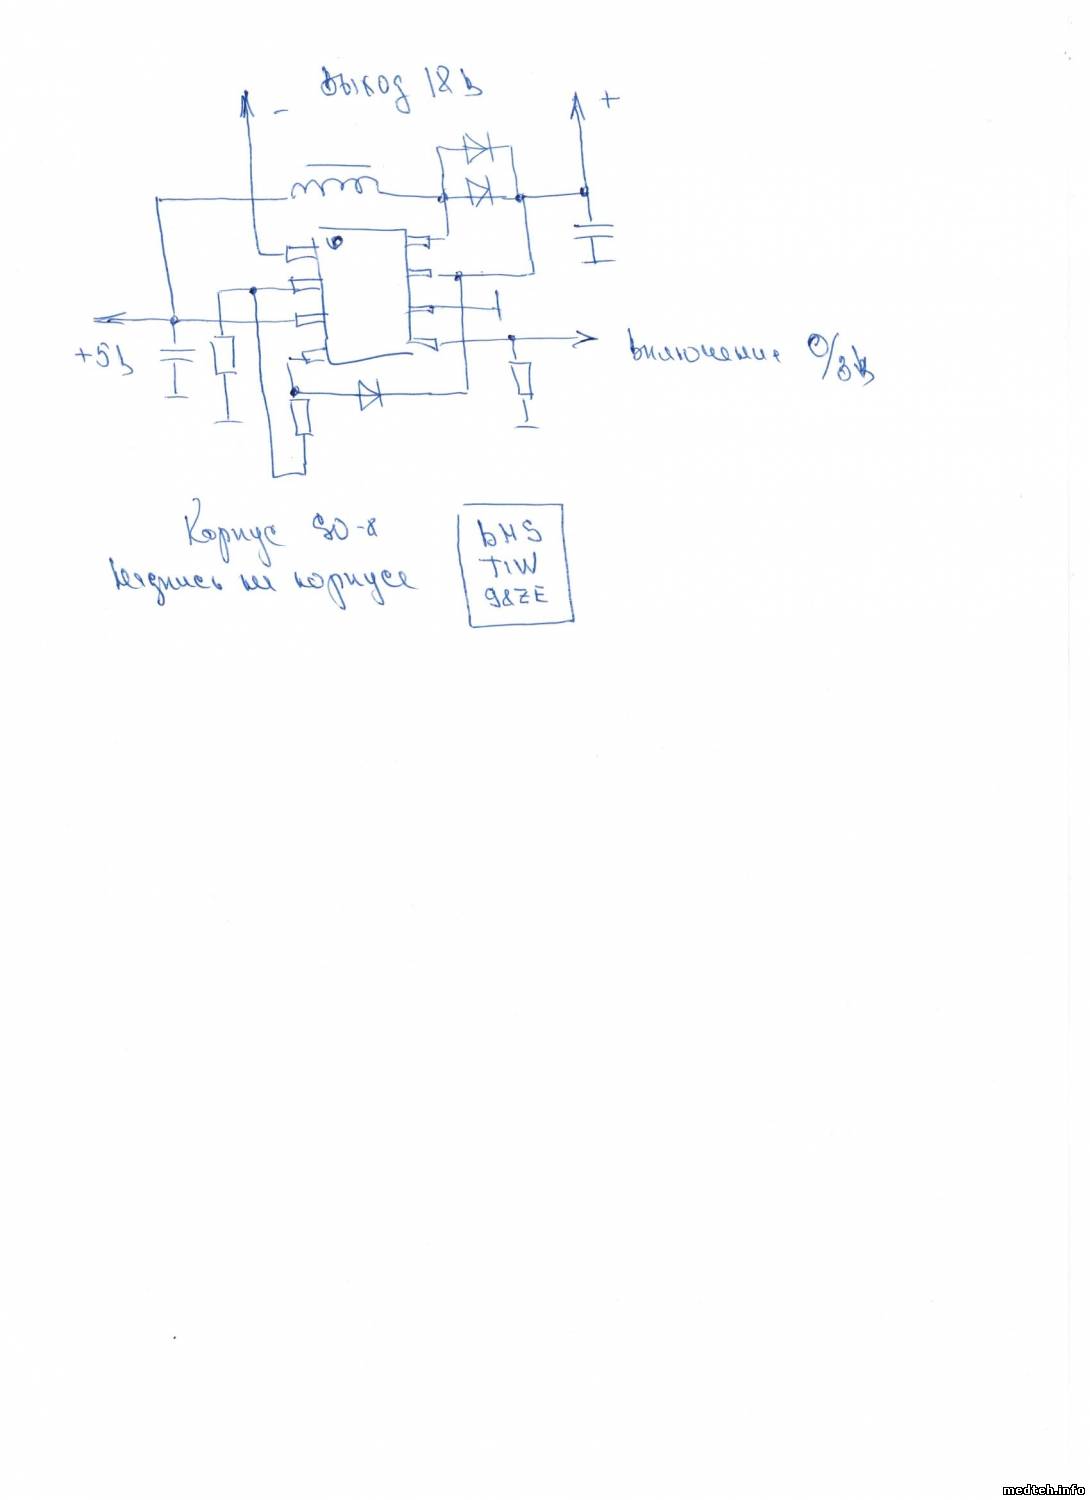 Выход 18 В
- +
+5В
Включение 0/3В
Корпус SO-8
Надпись на корпусе
BHS
TIW
98ZE
medteh.info